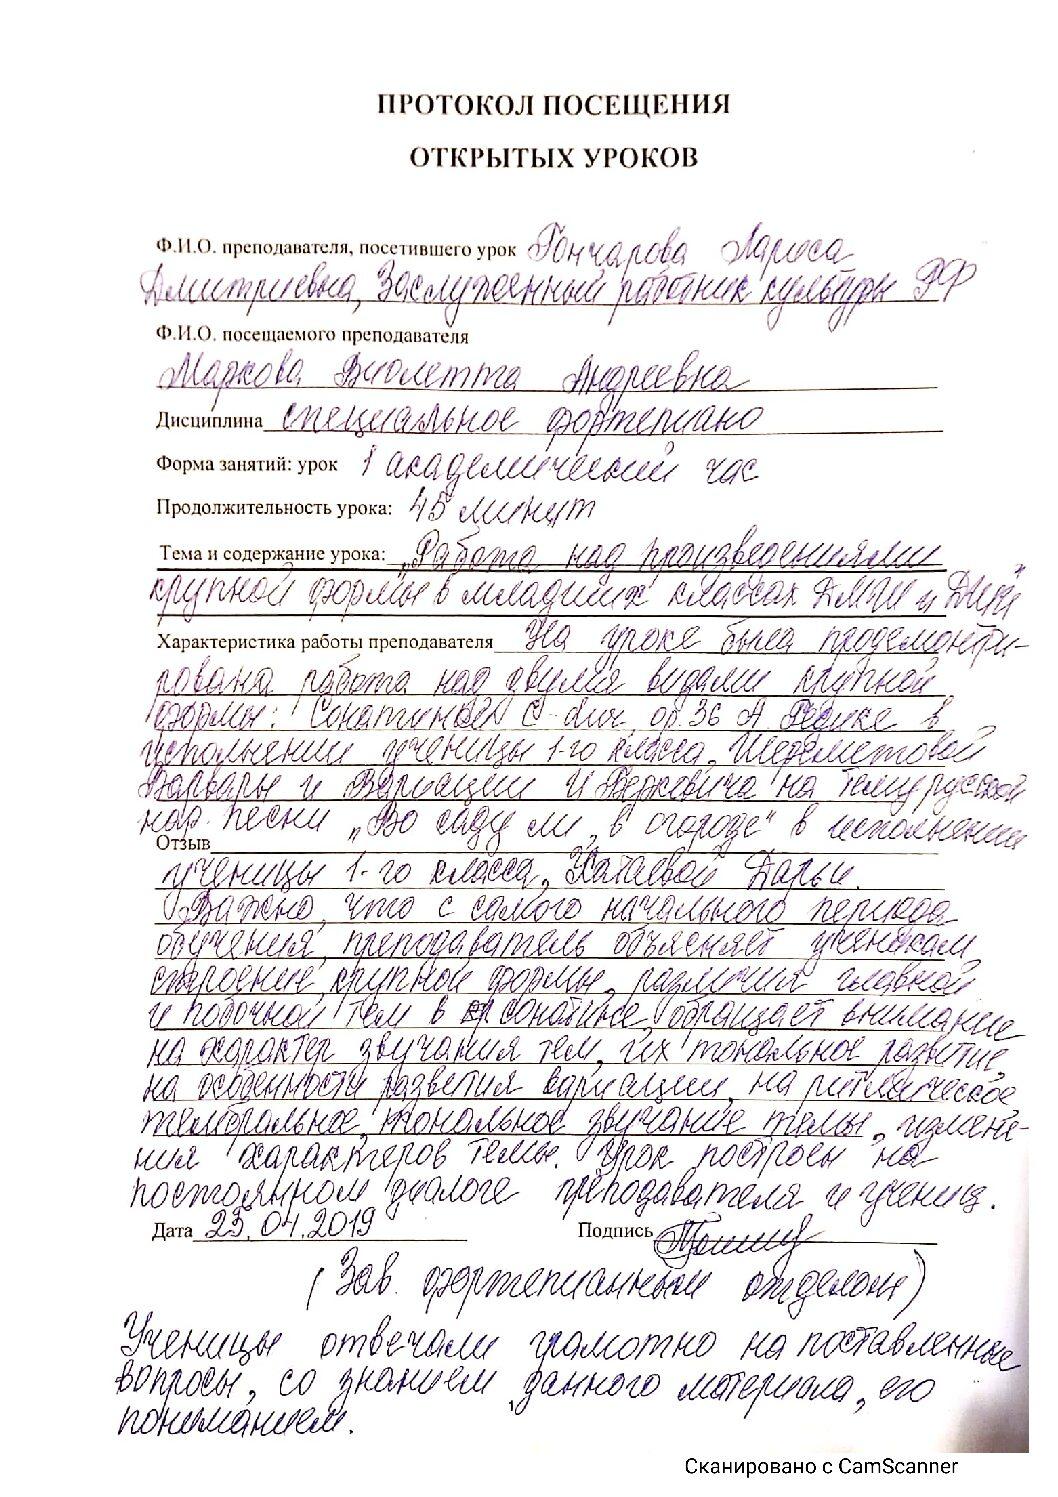 ПРОТОКОЛ ПОСЕЩЕНИЯ
ОТКРЫТЫХ УРОКОВ
Ф.И.О. преподавателя, посетившего урок Гончарова Лариса
Дмитриевна, Заслуженный работник культуры РФ
Ф.И.О. посещаемого преподавателя
Маркова Виолетта Андреевна
Дисциплина специальное фортепиано
Форма занятий: урок 1 академический час
Продолжительность урока: 45 минут
Тема и содержание урока: „Работа над произведениями
крупной формы в младших классах ДМШ и ДШИ"
Характеристика работы преподавателя На уроке была продемонстри-
рована работа над двумя видами крупной
формы: Сонатиной C-dur, op. 36 А Гедике в
исполнении ученицы 1-го класса, Шереметовой
Варвары и Вариации И Берковича на тему русской
нар. песни „Во саду ли, в огороде" в исполнении
Отзыв
ученицы 1-го класса, Хатаевой Дарьи.
Важно, что с самого начального периода
обучения, преподаватель объясняет ученикам,
строение крупной формы, различия главной
и побочной тем в сонатине, обращает внимание
на характер звучания тем, их тональное развитие,
на особенности развития вариации, на ритмическое
тембральное, тональное звучание темы, измене-
ния характеров темы. Урок построен на
постоянном диалоге преподавателя и учениц.
Дата 23.04.2019 Подпись
(Зав. фортепианным отделом)
Ученицы отвечали грамотно на поставленные
вопросы, со знанием данного материала, его
пониманием.
Сканировано с CamScanner